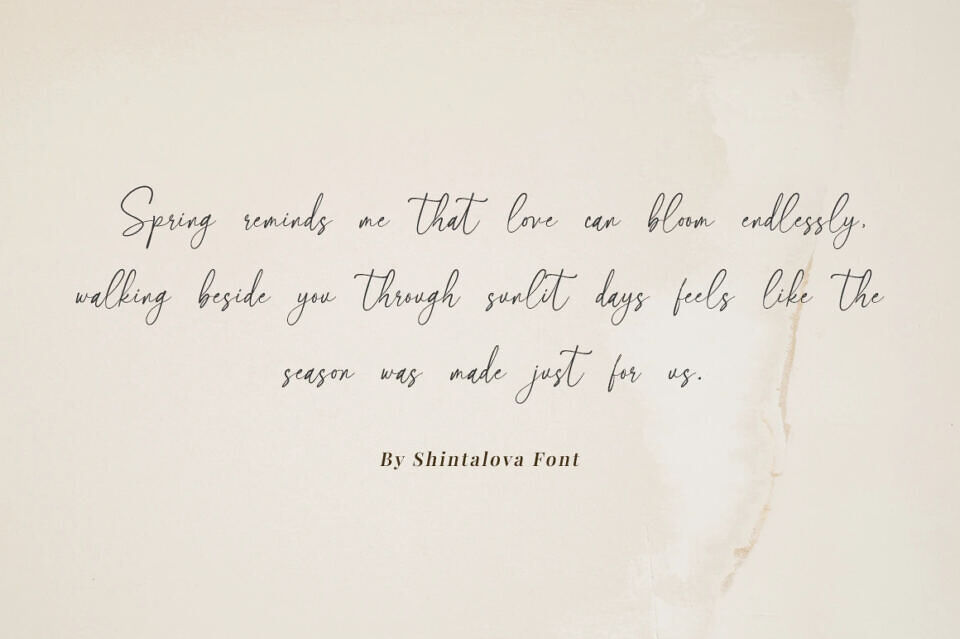 Spring reminds me that love can bloom endlessly,
walking beside you through sunlit days feels like the
season was made just for us.
By Shintalova Font